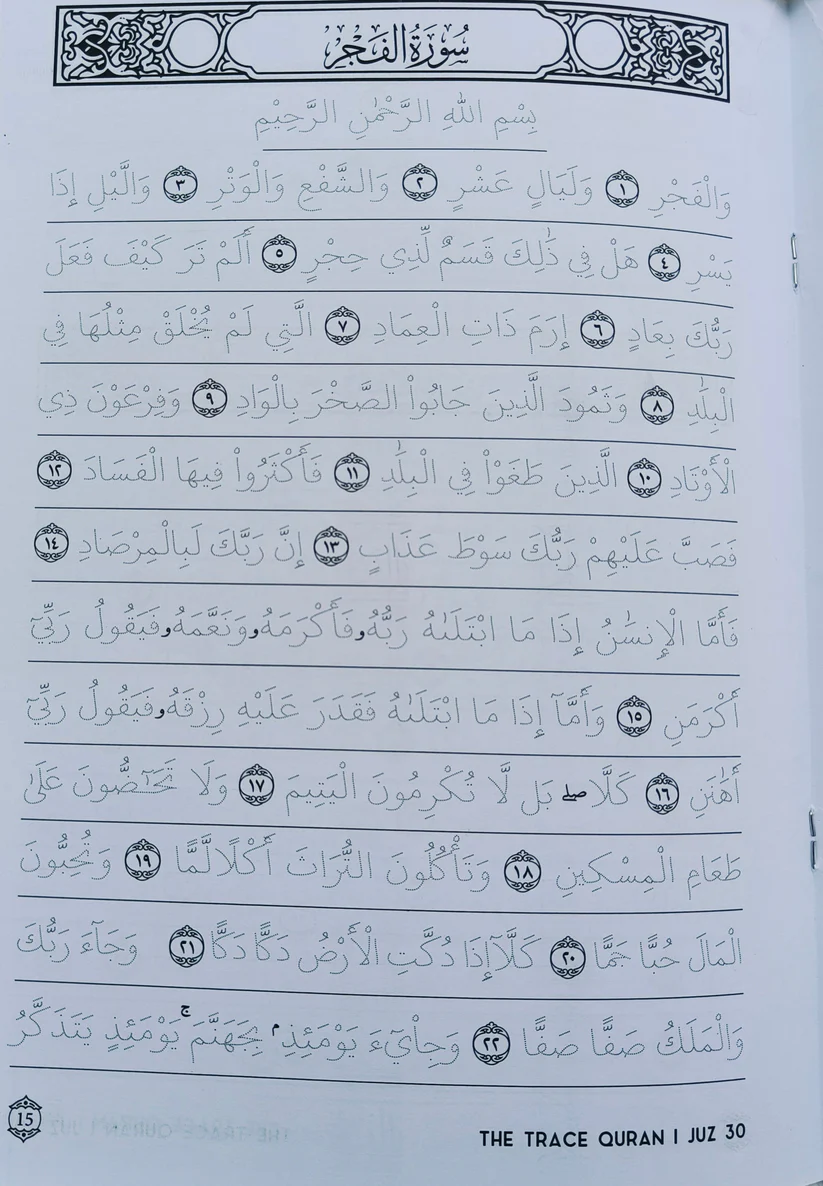 سُورَةُ الْفَجْرِ
بِسْمِ اللَّهِ الرَّحْمَٰنِ الرَّحِيمِ
وَالْفَجْرِ ١ وَلَيَالٍ عَشْرٍ ٢ وَالشَّفْعِ وَالْوَتْرِ ٣ وَاللَّيْلِ إِذَا
يَسْرِ ٤ هَلْ فِي ذَٰلِكَ قَسَمٌ لِّذِي حِجْرٍ ٥ أَلَمْ تَرَ كَيْفَ فَعَلَ
رَبُّكَ بِعَادٍ ٦ إِرَمَ ذَاتِ الْعِمَادِ ٧ الَّتِي لَمْ يُخْلَقْ مِثْلُهَا فِي
الْبِلَٰدِ ٨ وَثَمُودَ الَّذِينَ جَابُواْ الصَّخْرَ بِالْوَادِ ٩ وَفِرْعَوْنَ ذِي
الْأَوْتَادِ ١٠ الَّذِينَ طَغَوْاْ فِي الْبِلَٰدِ ١١ فَأَكْثَرُواْ فِيهَا الْفَسَادَ ١٢
فَصَبَّ عَلَيْهِمْ رَبُّكَ سَوْطَ عَذَابٍ ١٣ إِنَّ رَبَّكَ لَبِالْمِرْصَادِ ١٤
فَأَمَّا الْإِنسَٰنُ إِذَا مَا ابْتَلَىٰهُ رَبُّهُۥ فَأَكْرَمَهُۥ وَنَعَّمَهُۥ فَيَقُولُ رَبِّيٓ
أَكْرَمَنِ ١٥ وَأَمَّآ إِذَا مَا ابْتَلَىٰهُ فَقَدَرَ عَلَيْهِ رِزْقَهُۥ فَيَقُولُ رَبِّيٓ
أَهَٰنَنِ ١٦ كَلَّا ۖ بَل لَّا تُكْرِمُونَ الْيَتِيمَ ١٧ وَلَا تَحَٰٓضُّونَ عَلَىٰ
طَعَامِ الْمِسْكِينِ ١٨ وَتَأْكُلُونَ التُّرَاثَ أَكْلًا لَّمًّا ١٩ وَتُحِبُّونَ
الْمَالَ حُبًّا جَمًّا ٢٠ كَلَّآ إِذَا دُكَّتِ الْأَرْضُ دَكًّا دَكًّا ٢١ وَجَآءَ رَبُّكَ
وَالْمَلَكُ صَفًّا صَفًّا ٢٢ وَجِاْيٓءَ يَوْمَئِذِۭ بِجَهَنَّمَ ۚ يَوْمَئِذٍ يَتَذَكَّرُ
15
THE TRACE QURAN | JUZ 30